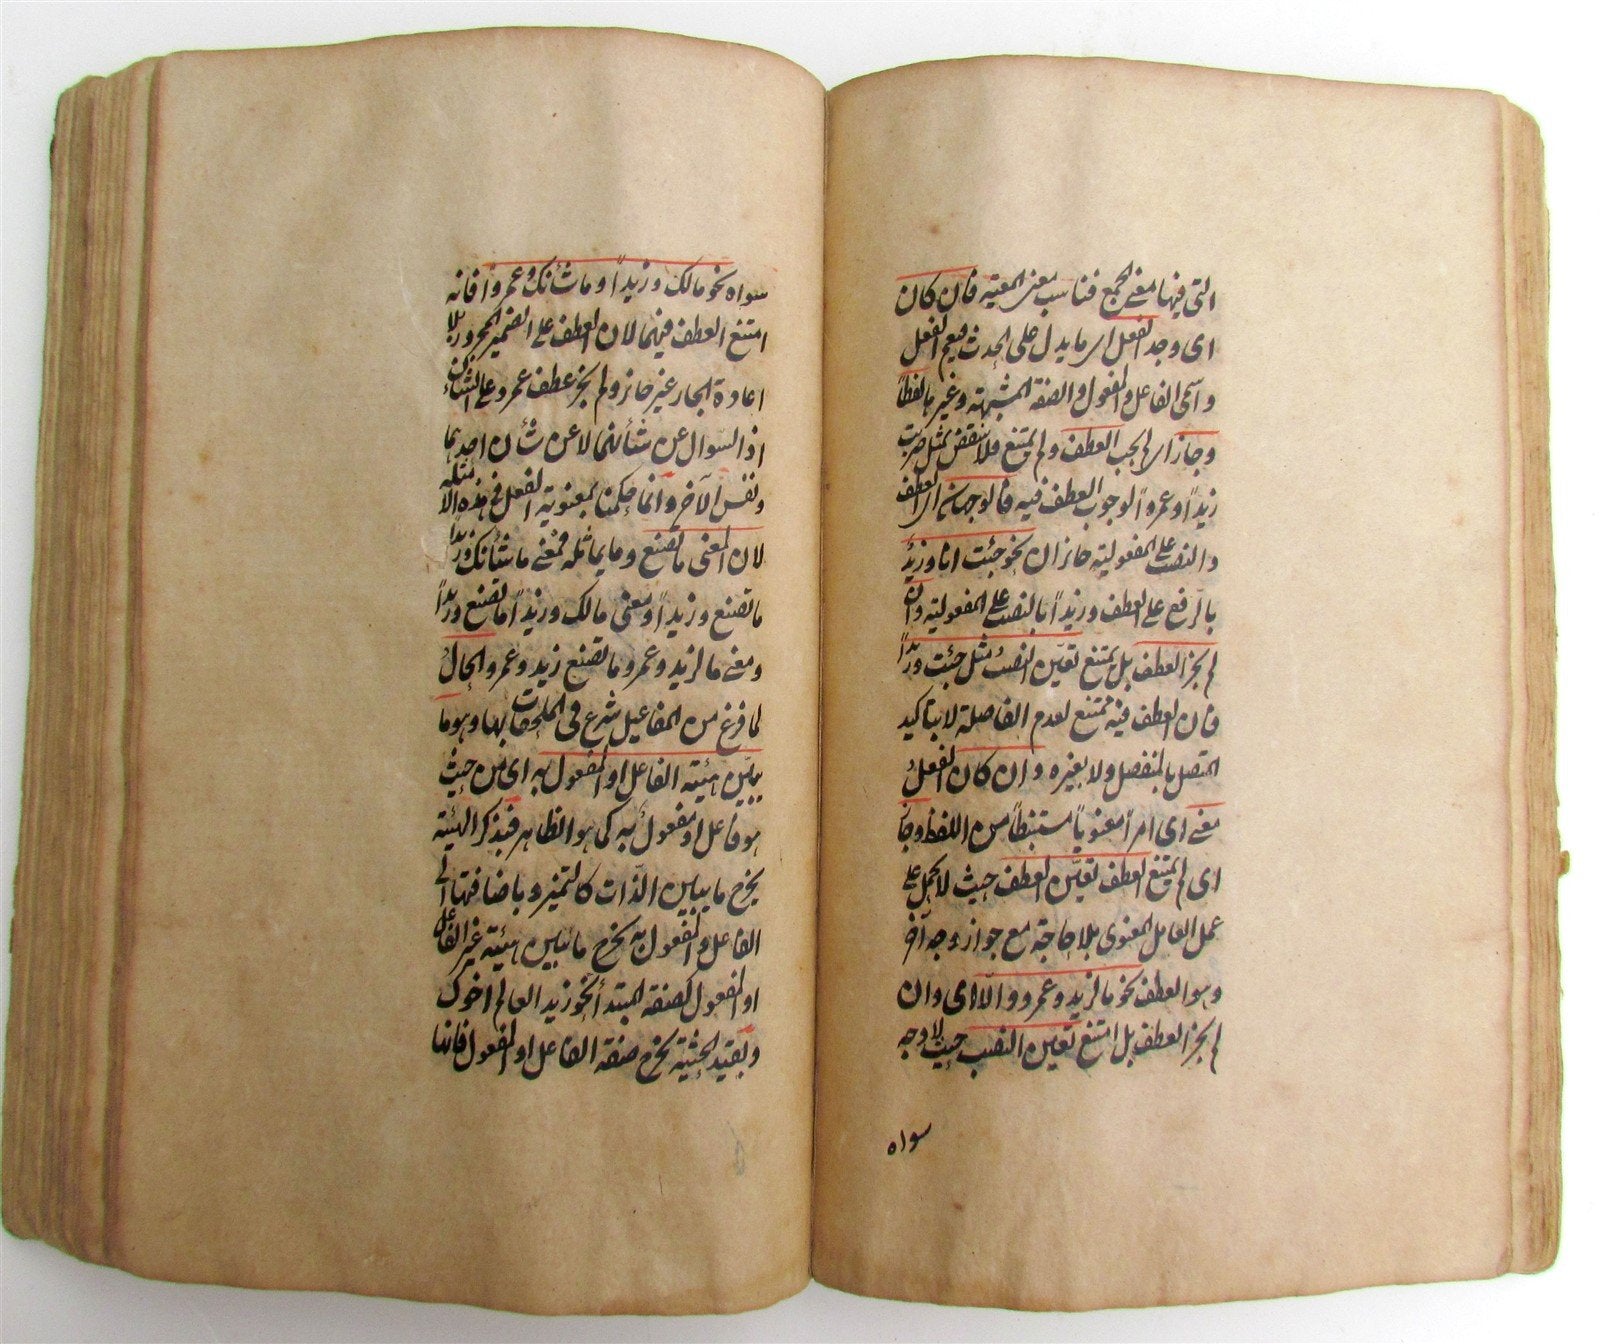 التى فيها معنى الجمع فناسب معنى المعية فان كان
اى وجد الفعل اى ما يدل على الحدث فيعم الفعل
واسمى الفاعل والمفعول والصفة المشبهة وغيرها لفظاً
وجاز اى لم يجب العطف ولم يمتنع فلا ينتقض بمثل ضربت
زيداً وعمرواً لوجوب العطف فيه فالوجهان اى العطف
والنصب على المفعولية جائزان نحو جئت انا وزيدٌ
بالرفع على العطف وزيداً بالنصب على المفعولية وان
لم يجز العطف بل يمتنع تعين النصبُ مثل جئت وزيداً
فان العطف فيه ممتنع لعدم الفاصلة لا بتاكيد
المتصل بالمنفصل ولا بغيره وان كان الفعلُ
معنى اى امراً معنوياً مستنبطاً من اللفظ وجاز
اى لم يمتنع العطف تعيّن العطف حيث لا يحمل على
عمل العامل المعنوى بلا حاجة مع جواز وجه آخر
وهو العطف نحو ما لزيد وعمرو والاّ اى وان
لم يجز العطف بل امتنع تعين النصب حيث لا وجه
سواه
سواه نحو مالك وزيداً وما شأنك وعمرواً فانه
امتنع العطف فيهما لان العطف على الضمير المجرور بلا
اعادة الجار غير جائز ولم يجز عطف عمرو على الشان
اذ السوال عن شأنهما لا عن شأن احدهما
ونفس الآخر وانما حكمنا بمعنوية الفعل فى هذه الامثلة
لان المعنى ما تصنع وما يماثله فمعنى ما شأنك وزيداً
ما تصنع وزيداً ومعنى مالك وزيداً ما تصنع وزيداً
ومعنى ما لزيد وعمرو ما تصنع زيد وعمرو الحالُ
لما فرغ من المفاعيل شرع فى الملحقات بها وهو ما
يبيّن هيئة الفاعل او المفعول به اى من حيث
هو فاعل او مفعول به كما هو الظاهر فبذكر الهيئة
يخرج ما يبين الذّات كالتميز وباضافتها الى
الفاعل والمفعول به يخرج ما يبين هيئة غير الفاعل
او المفعول كصفة المبتدأ نحو زيد العالم اخوك
وبقيد الحيثية يخرج صفة الفاعل او المفعول فانها